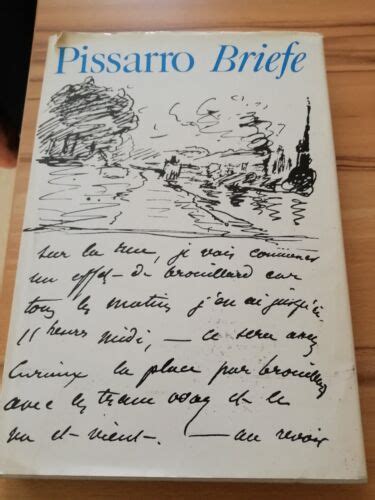 Pissarro Briefe
sur la rue, je vais commencer
un effet de brouillard car
tous les matins j'en ai jusqu'à
11 heures midi, — ce sera assez
curieux la place par brouillard
avec les tram et le
va et-vient. — au revoir